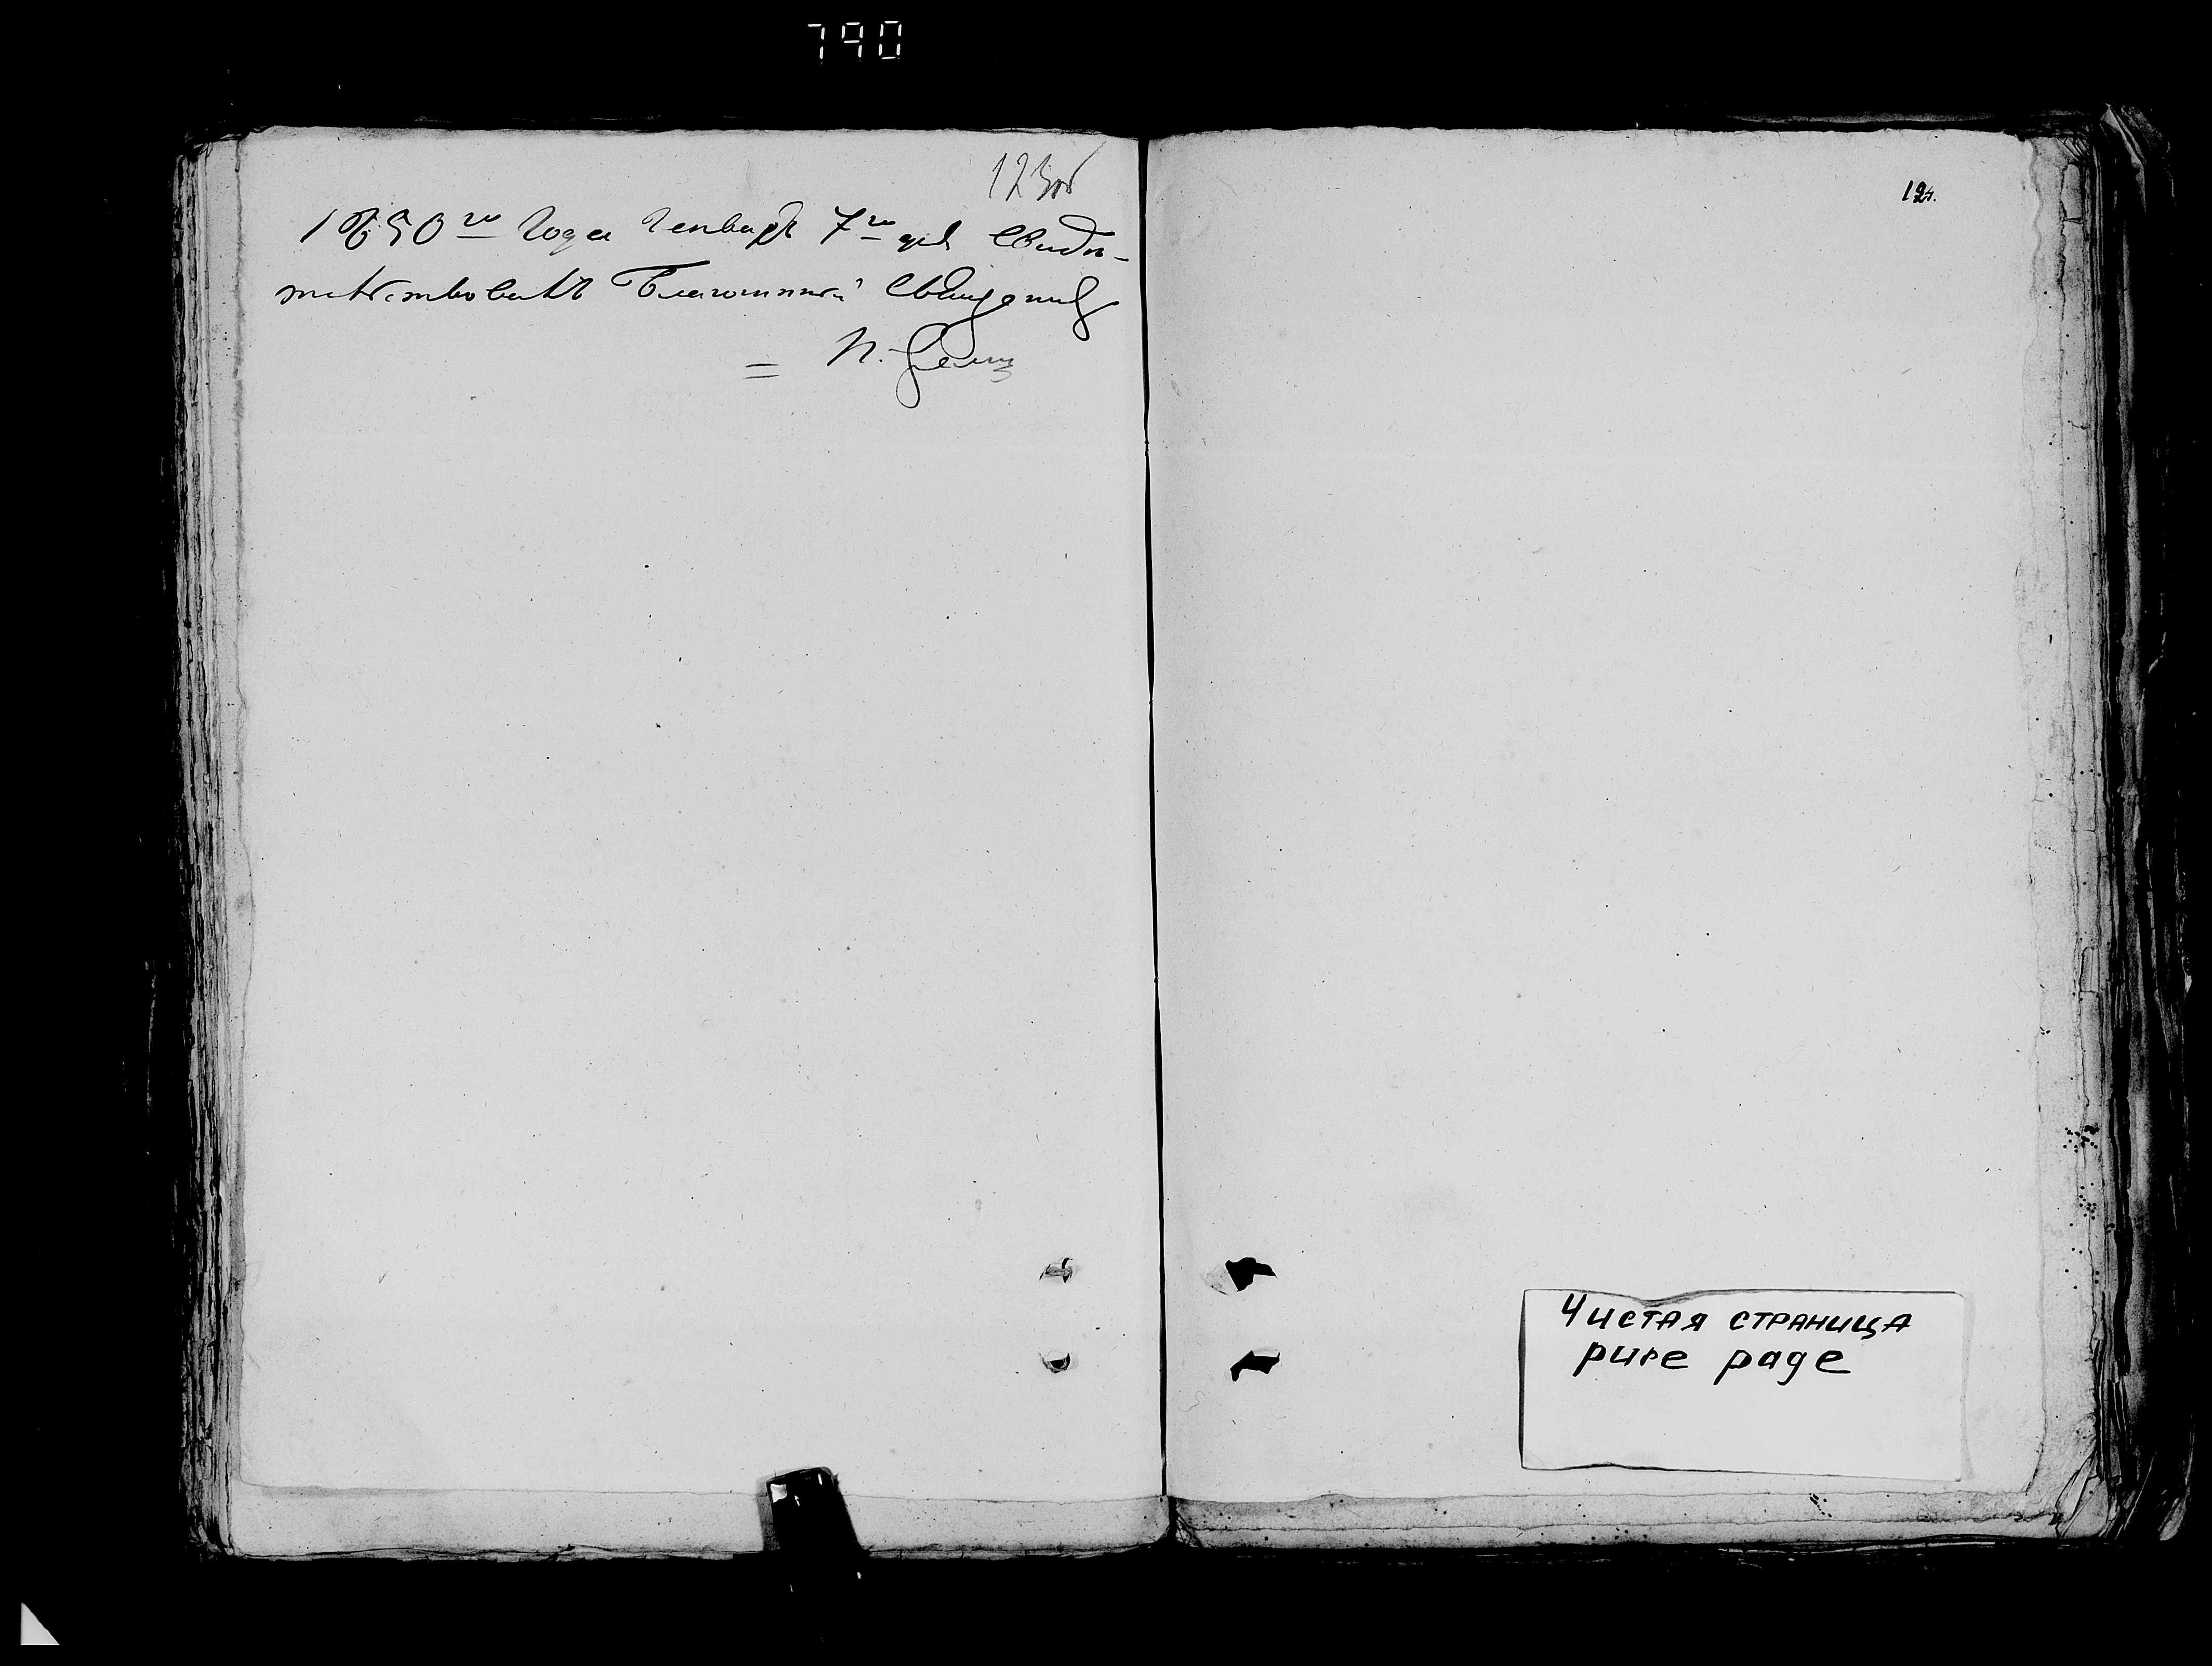 790
123об
1850го Года Генваря 7го дня Свидѣ-
тельствовалъ Благочинный Священникъ
124.
Чистая страница
pure page